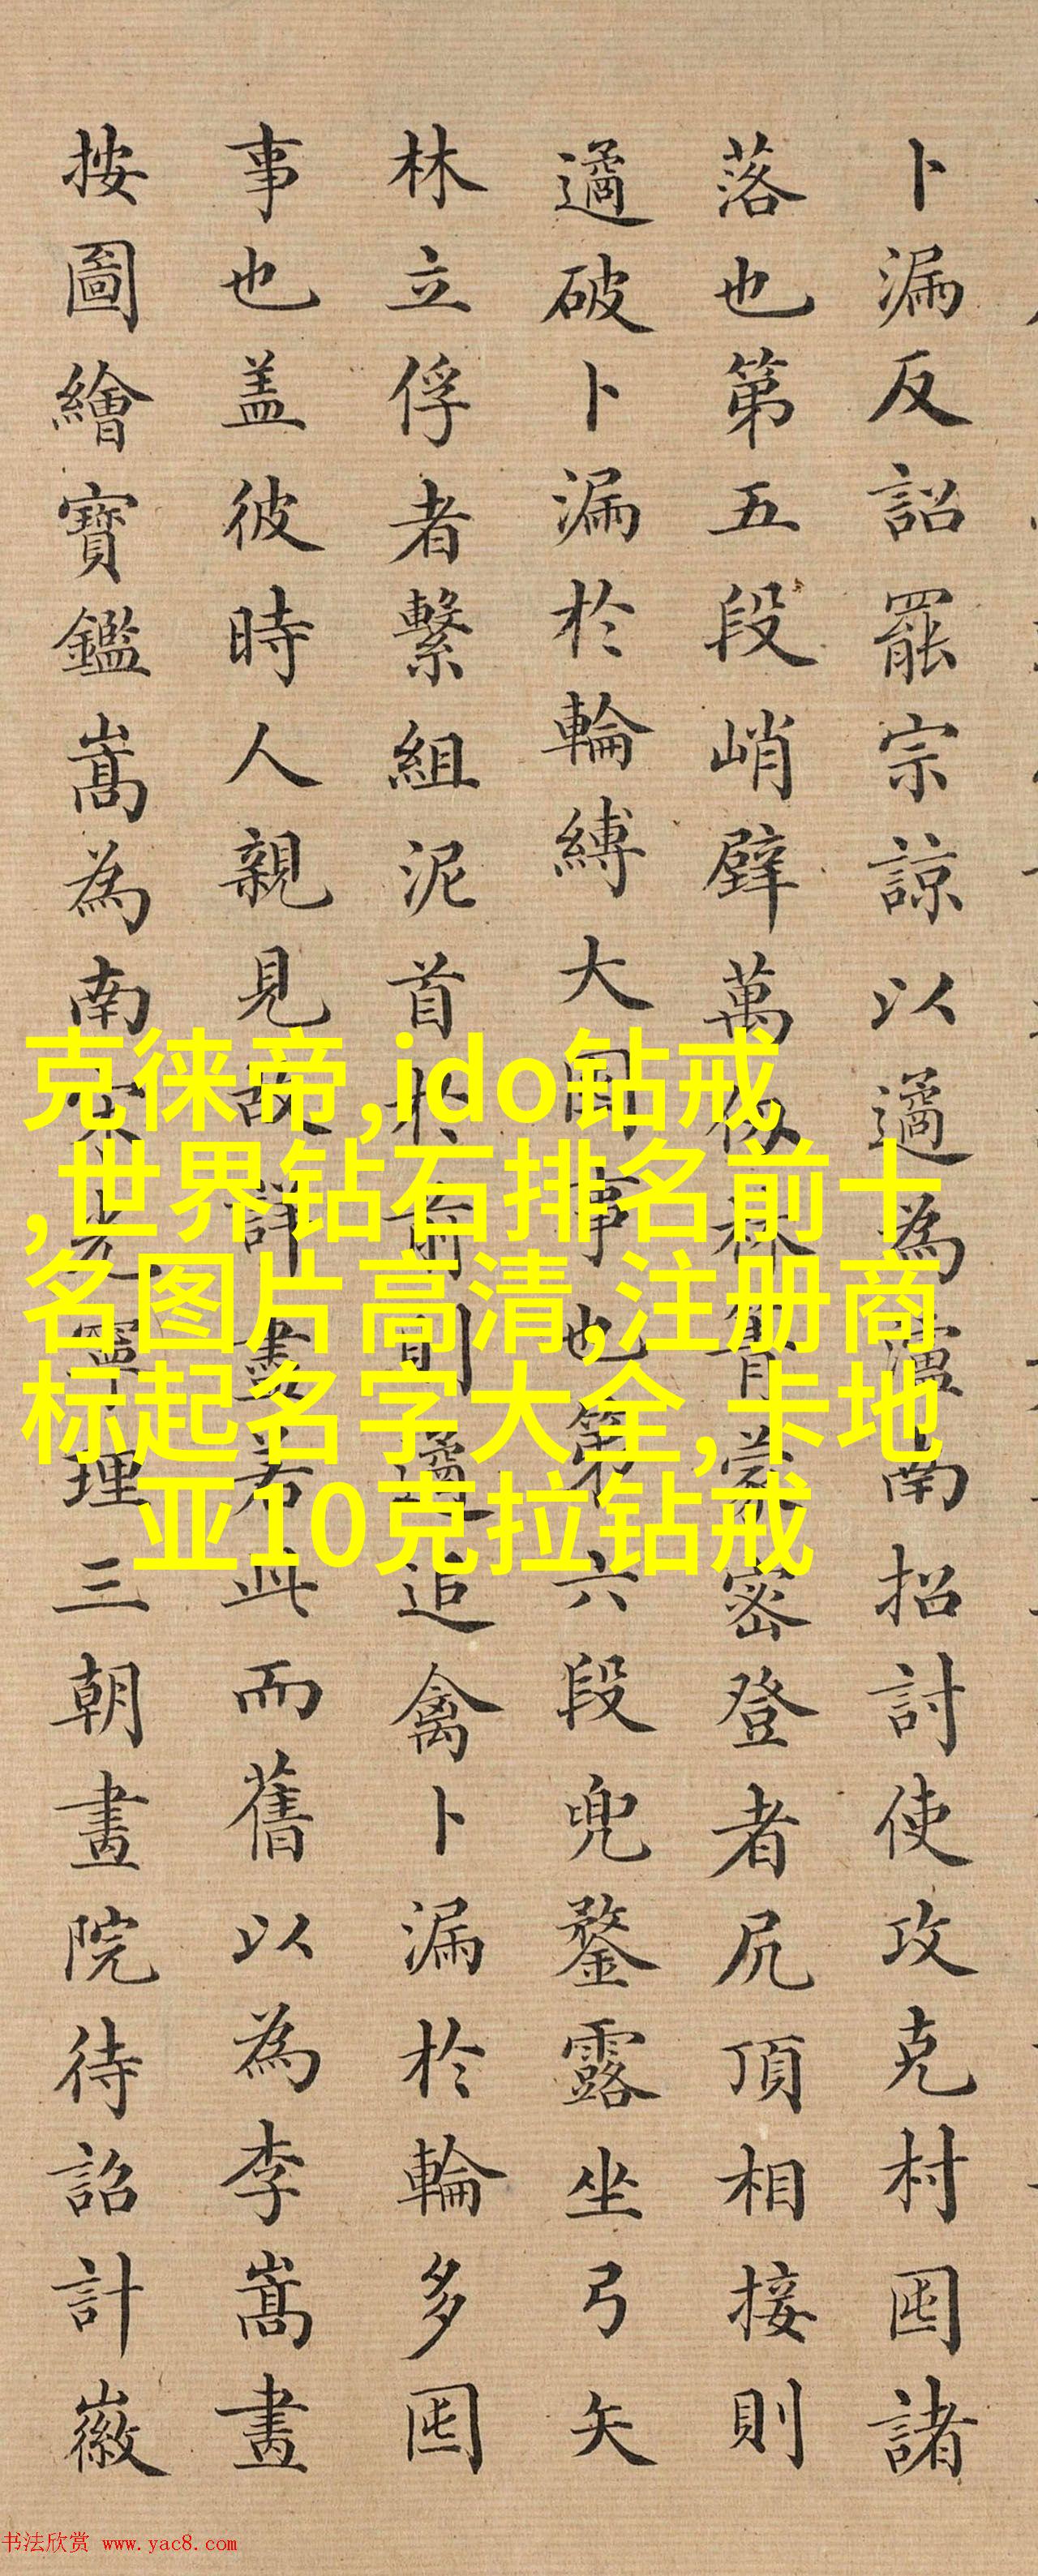 卜漏反詔罷宗諒以遹為瀘南招討使攻克村囤諸
落也第五段峭壁萬仞林箐蒙密登者尻頂相接則
遹破卜漏於輪縛大囤事也第六段兜鍪露坐弓矢
林立俘者繫組泥首於前則遹追禽卜漏於輪多囤
事也盖彼時人親見故詳盡若此而舊以為李嵩畫
按圖繪寶鑑嵩為南宋光寧理三朝畫院待詔計徽
克徕帝,ido钻戒
,世界钻石排名前十
名图片高清,注册商
标起名字大全,卡地
亚10克拉钻戒
书法欣赏 www.yac8.com